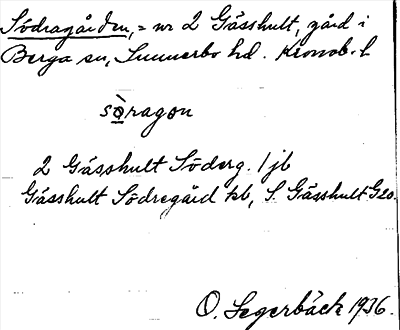 Södragården, = nr 2 Gåsshult, gård i
Berga sn, Sunnerbo hd. Kronob. l
sòragon
2 Gåsshult Söderg. / jb
Gåsshult Södregård kb, S. Gåsshult GEO.
O. Segerbäck 1936.